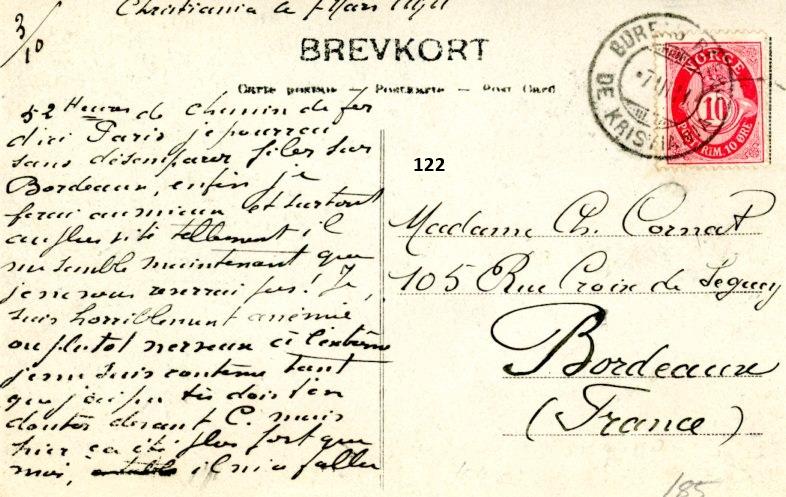 3/10
Christiania le 7 Mars
BREVKORT
CARTE POSTALE — POSTKARTE — POST CARD
52 Heures de chemin de fer
d'ici Paris je pourrai
sans désemparer filer sur
Bordeaux, enfin je
ferai au mieux et surtout
au plus vite tellement il
me semble maintenant que
je ne vous reverrai pas! Je
suis horriblement anémié
ou plutot nerveux à l'extrême
je me suis contenu tant
que j'ai pu tu dois t'en
douter devant C. mais
hier ça été plus fort que
moi, il m'a fallu
122
Madame Ch. Cornat
105 Rue Croix de Seguey
Bordeaux
(France)
BUREAU
DE KRISTIANIA
NORGE
10
POSTFRIM. 10 ØRE
185